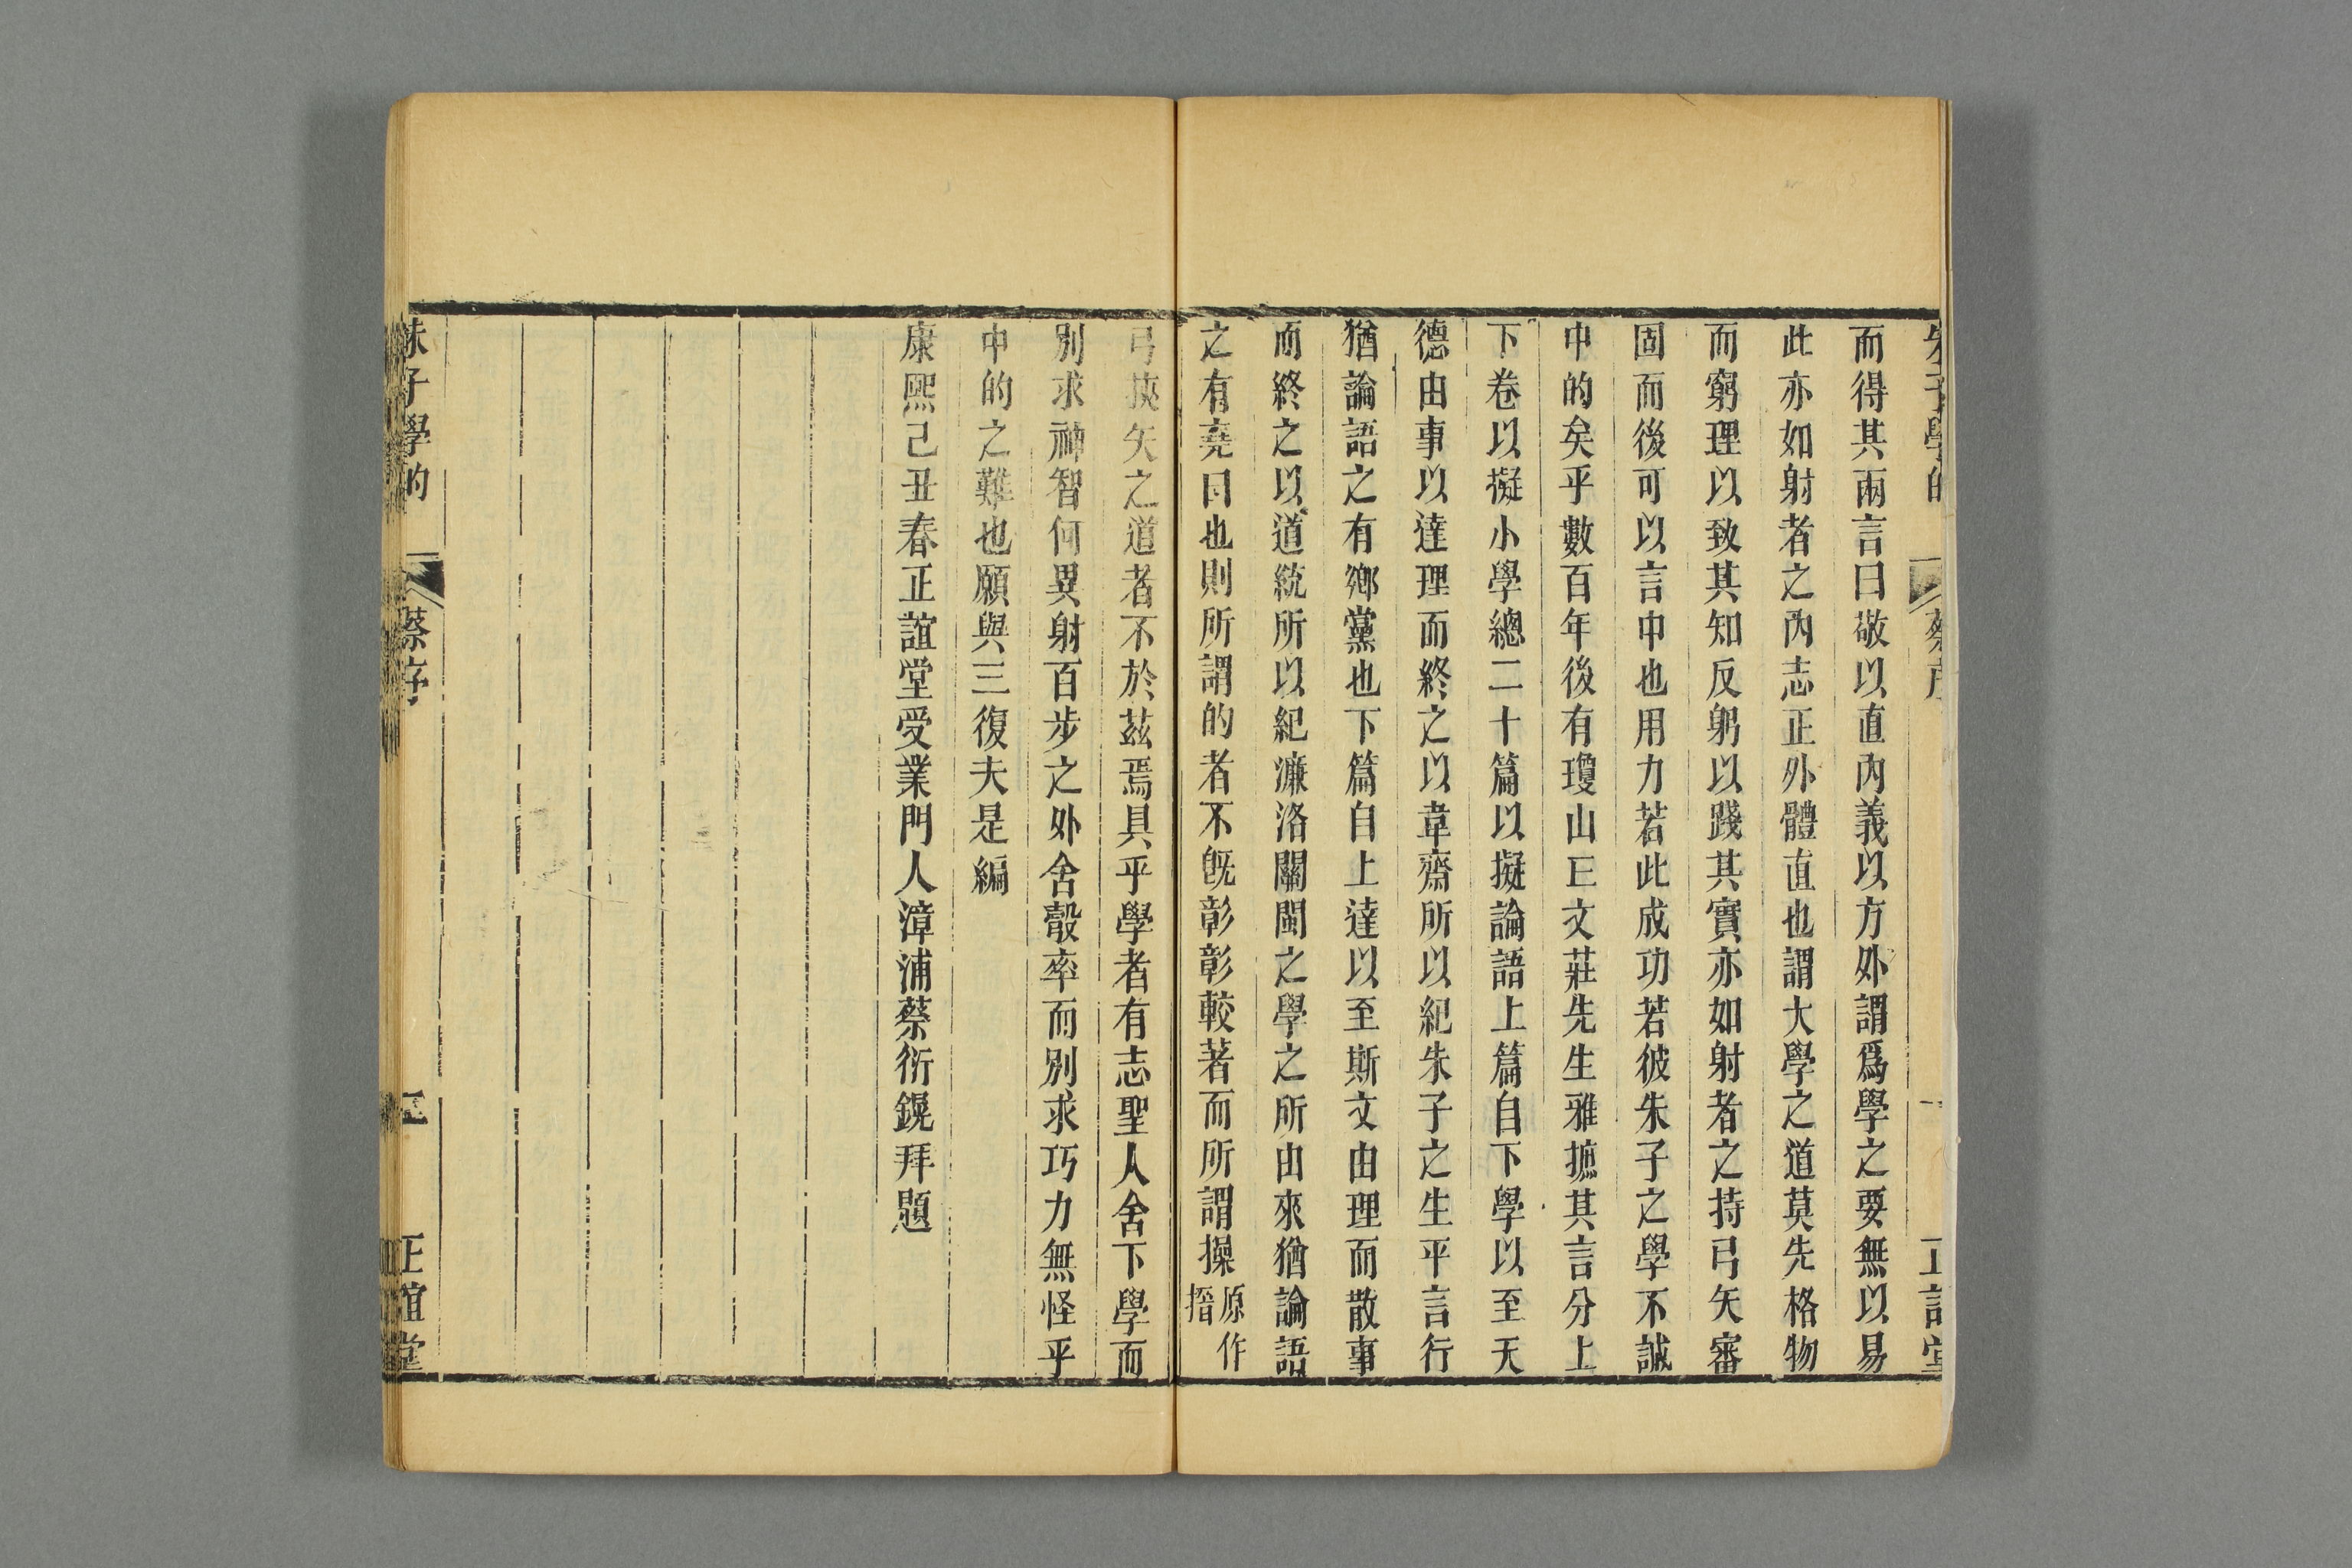 朱子學的 蔡序 一 正誼堂
而得其兩言曰敬以直內義以方外謂爲學之要無以易
此亦如射者之內志正外體直也謂大學之道莫先格物
而窮理以致其知反躬以踐其實亦如射者之持弓矢審
固而後可以言中也用力若此成功若彼朱子之學不誠
中的矣乎數百年後有瓊山𠀉文莊先生雅摭其言分上
下卷以擬小學總二十篇以擬論語上篇自下學以至天
德由事以達理而終之以韋齋所以紀朱子之生平言行
猶論語之有鄉黨也下篇自上達以至斯文由理而散事
而終之以道統所以紀濂洛關閩之學之所由來猶論語
之有堯曰也則所謂的者不旣彰彰較著而所謂操原作搢
弓挾矢之道者不於茲焉具乎學者有志聖人舍下學而
別求神智何異射百步之外舍彀率而別求巧力無怪乎
中的之難也願與三復夫是編
康熙己丑春正誼堂受業門人漳浦蔡衍鎤拜題
朱子學的 蔡序 二 正誼堂